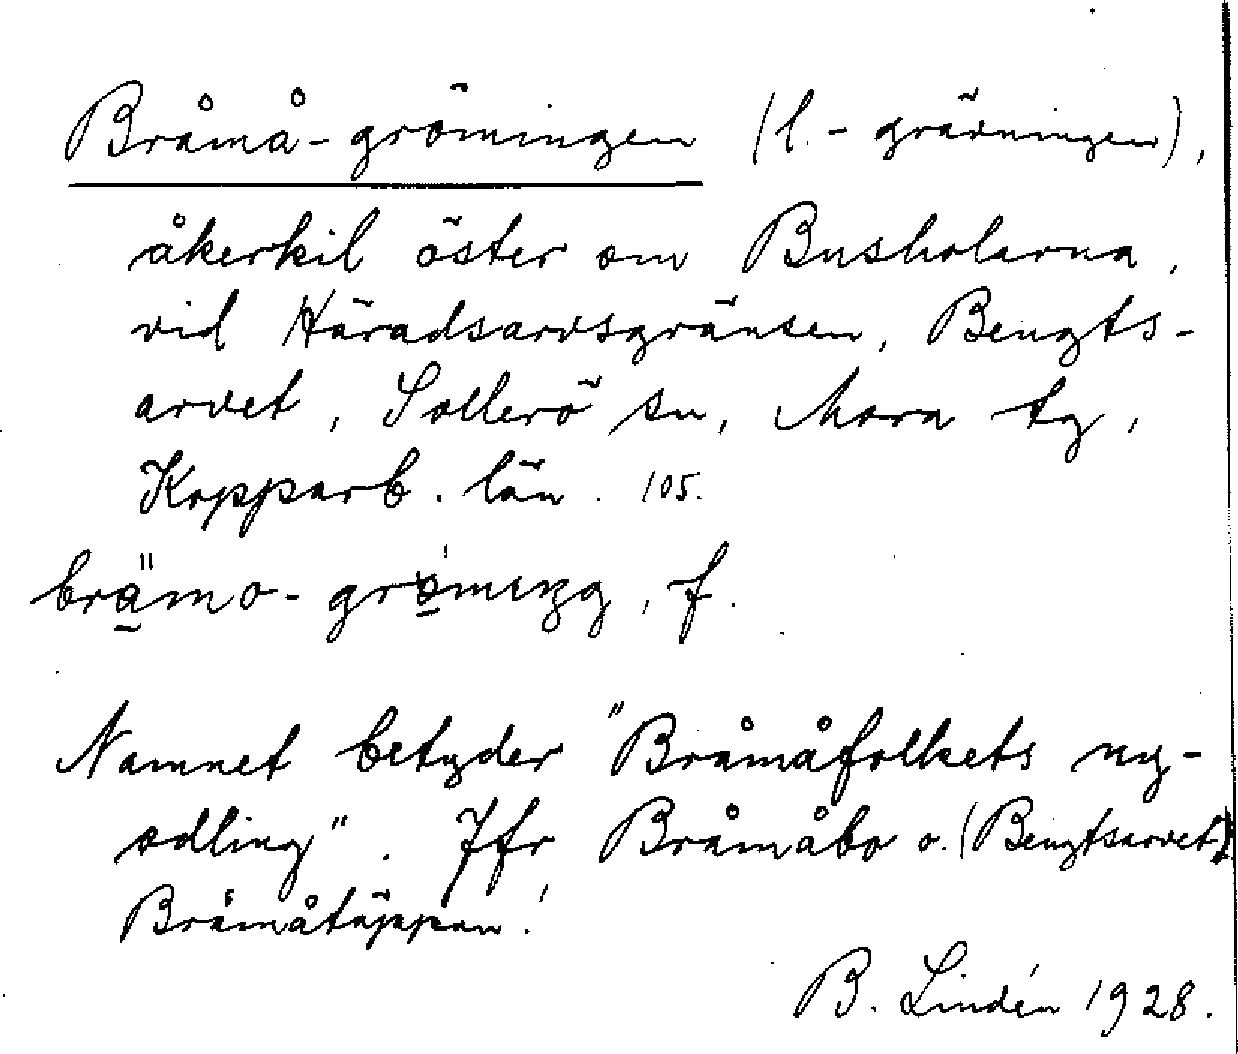 Bråmå-gröningen (l. - grävningen),
åkerkil öster om Busholarna,
vid Häradsarvsgränsen, Bengts-
arvet, Sollerö sn, Mora tg,
Kopparb. län. 105.
f.
Namnet betyder "Bråmåfolkets ny-
odling". Jfr Bråmåbo o. (Bengtsarvet)
Bråmåtäppan!
B. Lindén 1928.